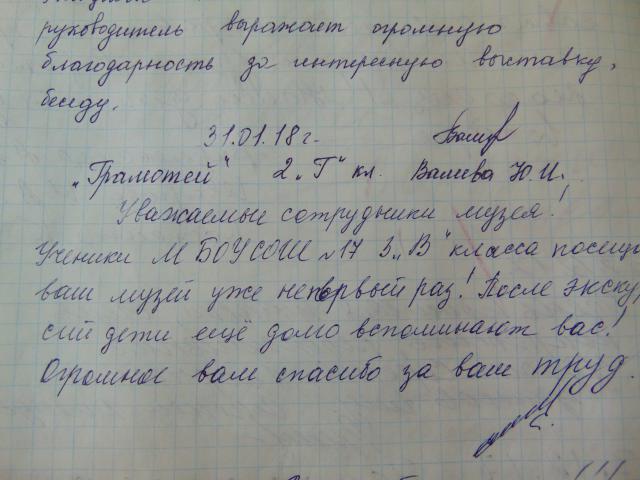 руководитель выражает огромную
благодарность за интересную выставку,
беседу.
31.01.18г.
„Грамотей“ 2 „Г“ кл. Валиева Ю.И.
Уважаемые сотрудники музея!
Ученики МБОУСОШ №17 3 „В“ класса посещ
ваш музей уже непервый раз! После экску
сий дети ещё домо вспоминают вас!
Огромное вам спасибо за ваш труд.